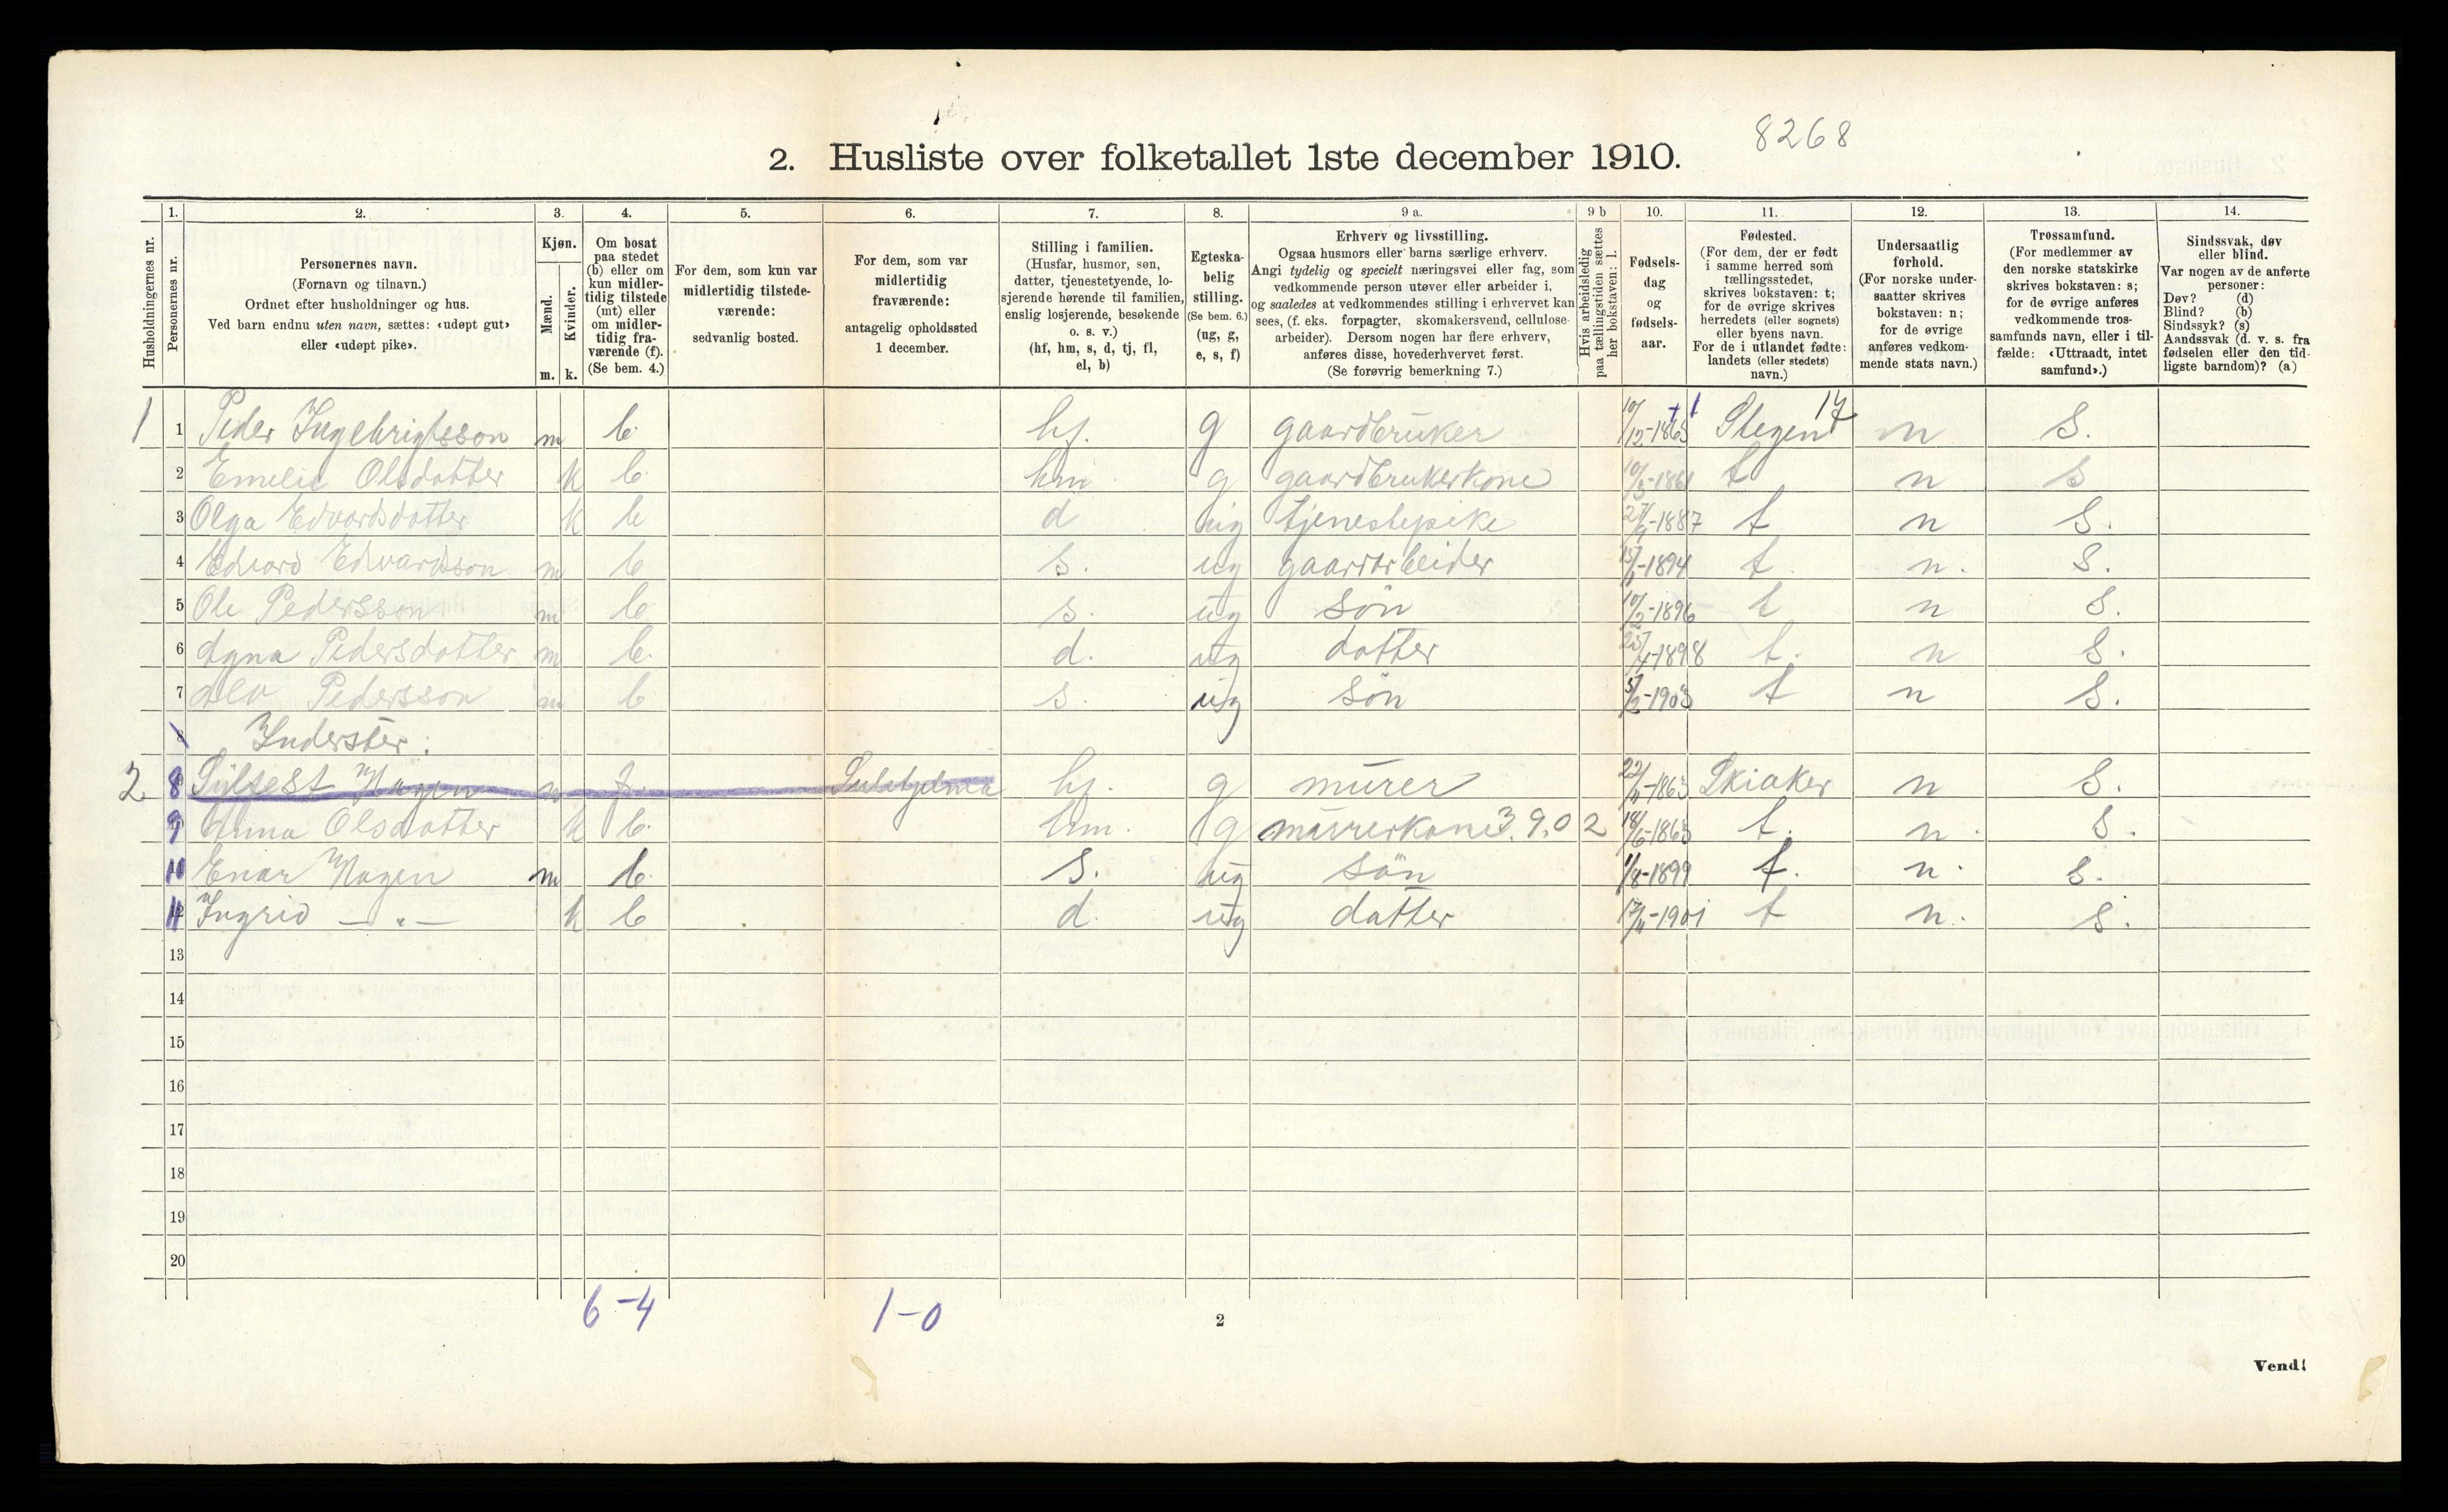 8268
2. Husliste over folketallet 1ste december 1910.
Husholdningernes nr.
1. Personernes nr.
2. Personernes navn. (Fornavn og tilnavn.) Ordnet efter husholdninger og hus. Ved barn endnu uten navn, sættes: «udøpt gut» eller «udøpt pike».
3. Kjøn. Mænd. m. Kvinder. k.
4. Om bosat paa stedet (b) eller om kun midlertidig tilstede (mt) eller om midlertidig fraværende (f). (Se bem. 4.)
5. For dem, som kun var midlertidig tilstedeværende: sedvanlig bosted.
6. For dem, som var midlertidig fraværende: antagelig opholdssted 1 december.
7. Stilling i familien. (Husfar, husmor, søn, datter, tjenestetyende, losjerende hørende til familien, enslig losjerende, besøkende o. s. v.) (hf, hm, s, d, tj, fl, el, b)
8. Egteskabelig stilling. (Se bem. 6.) (ug, g, e, s, f)
9 a. Erhverv og livsstilling. Ogsaa husmors eller barns særlige erhverv. Angi tydelig og specielt næringsvei eller fag, som vedkommende person utøver eller arbeider i, og saaledes at vedkommendes stilling i erhvervet kan sees, (f. eks. forpagter, skomakersvend, cellulosearbeider). Dersom nogen har flere erhverv, anføres disse, hovederhvervet først. (Se forøvrig bemerkning 7.)
9 b Hvis arbeidsledig paa tællingstiden sættes her bokstaven: l.
10. Fødselsdag og fødselsaar.
11. Fødested. (For dem, der er født i samme herred som tællingsstedet, skrives bokstaven: t; for de øvrige skrives herredets (eller sognets) eller byens navn. For de i utlandet fødte: landets (eller stedets) navn.)
12. Undersaatlig forhold. (For norske undersaatter skrives bokstaven: n; for de øvrige anføres vedkommende stats navn.)
13. Trossamfund. (For medlemmer av den norske statskirke skrives bokstaven: s; for de øvrige anføres vedkommende trossamfunds navn, eller i tilfælde: «Uttraadt, intet samfund».)
14. Sindssvak, døv eller blind. Var nogen av de anførte personer: Døv? (d) Blind? (b) Sindssyk? (s) Aandssvak (d. v. s. fra fødselen eller den tidligste barndom)? (a)
1 1 Peder Ingebrigtsson m b. hf. g gaardbruker 10/12-1863 Stegen 17 n S.
2 Emelie Olsdatter k b. hm g gaardbrukerkone 10/5-1861 t n s
3 Olga Edvardsdatter k b d ug tjenestepike 1887 t n S.
4 Edvard Edvardsson m b s. ug gaardarbeider 1894 t n. S.
5 Ole Pedersson m b s. ug Søn 10/2-1896 t n S.
6 Agna Pedersdatter m b. d. ug datter 25/4-1898 t. n S.
7 Alv Pedersson m b s. ug Søn 5/2-1903 t n S.
Inderster:
2. 8 Sylfest Hagen m f. Sulitjelma hf. g murer 1863 Skiaker n S.
9 Anna Olsdatter k b. hm. g murerkone 3.9.0 2 18/6-1863 t. n. S.
10 Enar Hagen m b. S. ug Søn 1/8-1899 t. n. s.
11 Ingrid —„— k b d. ug datter 17/4-1901 t n. s.
13
14
15
16
17
18
19
20
6-4 1-0
2
Vend!